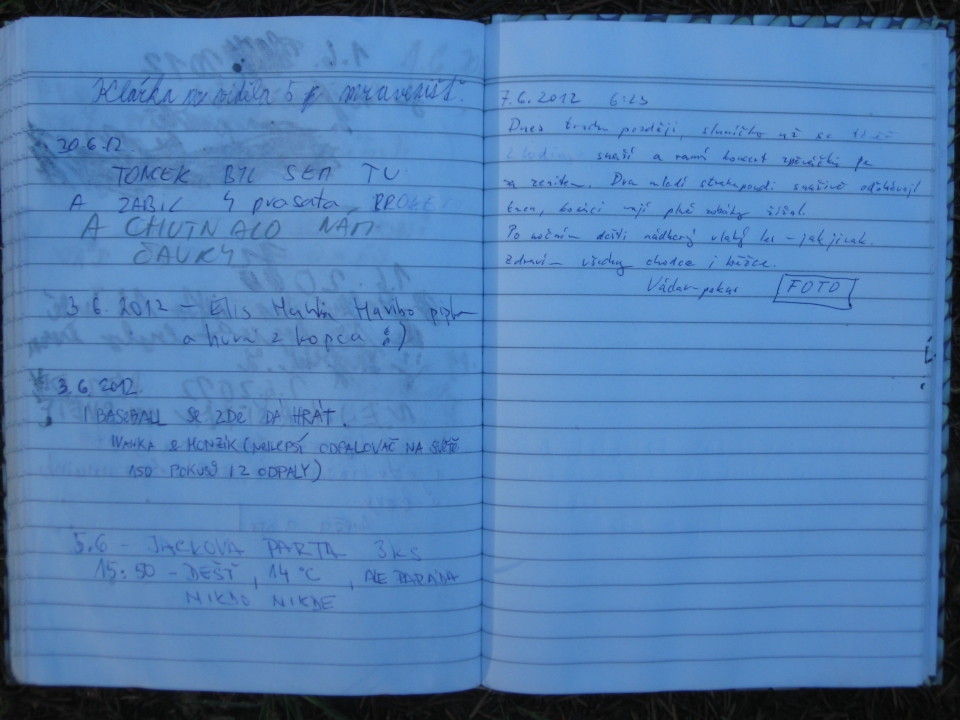 Klárka 5 mravenišť.
30.6.12.
TOMEK BYL SEM TU
A ZABIL 4 prasata,
A CHUTNALO NÁM
ČAVKY
3.6.2012 – Elis Haribo
a hurá z kopca :)
3.6.2012.
I BASEBALL SE ZDE DÁ HRÁT.
IVANKA & HONZÍK (NEJLEPŠÍ ODPALOVAČ NA SVĚTĚ
150 POKUSŮ / 2 ODPALY)
5.6 – JACKOVA PARTA 3ks
15:50 – DEŠŤ, 14 °C, ALE PARÁDA
NIKDO NIKDE
7.6.2012 6:23
Dnes trochu později, sluníčko už se
snaží a ranní koncert zpěváčků je
za zenitem. Dva mladí strakapoudi
mají plné šišek.
Po nočním dešti nádherný vlahý les – jak jinak.
Zdravím všechny chodce i běžce.
Václav FOTO